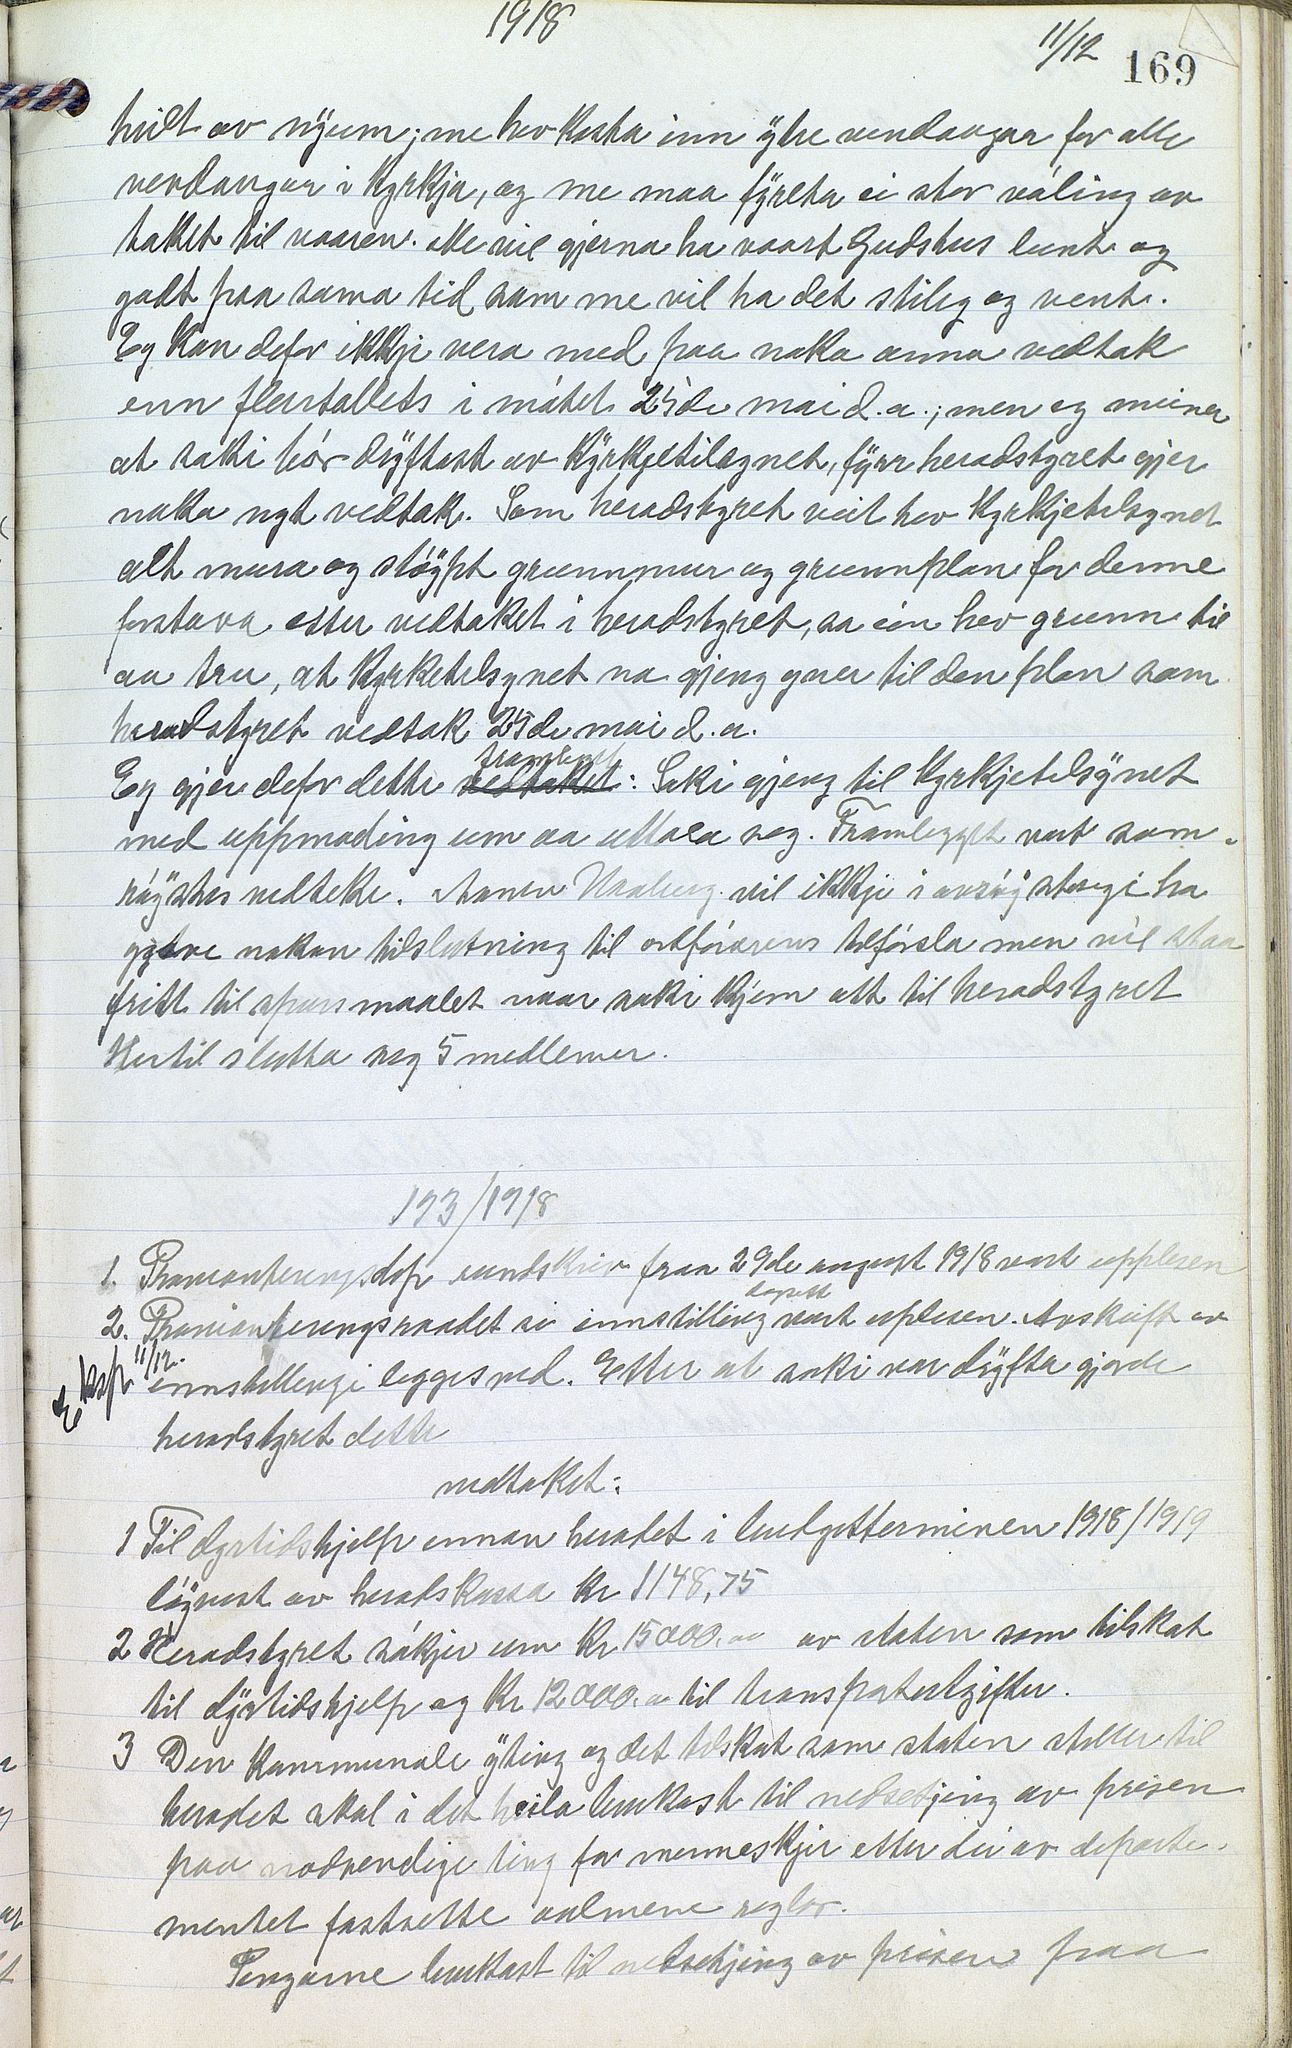 1918
11/12 169
heilt av nyom; me hev kosta inn ytre vendaugar for alle
vendaugar i kyrkja, og me maa fyreta ei stor våling av
taket til vaaren. Me vil gjerna ha vaart Gudshus lunt og
godt paa sama tid som me vil ha det stilig og vent.
Eg kan defor ikkji vera med paa noko anna vedtak
enn fleirtallets i mötet 25de mai d.a.; men eg meiner
at saki bör dryftast av Kyrkjetilsynet, fyrr heradstyret gjer
noko nyt vedtak. Som heradstyret veit hev Kyrkjetilsynet
alt mura og stöypt grunnmur og grunnplan for denne
forstova etter vedtaket i heradstyret, so ein hev grunn til
aa tru, at Kyrketilsynet no gjeng yver til den plan som
heradstyret vedtok 25de mai d.a.
framlegget
Eg gjer defor dette vedtaket: Saki gjeng til Kyrkjetilsynet
med uppmoding um aa uttala seg. Framlegget vart sam-
röystes vedteke. Aanen Uraberg vil ikkji i avröystingi ha
gjeve nokon tilslutning til ordförarens tilförsla men vil staa
fritt til spursmaalet naar saki kjem att til heradstyret
Hertil slutta seg 5 medlemer.
193/1918
1. Provianteringsdep rundskriv fraa 29de august 1918 vart upplesen
2. Provianteringsraadet si innstilling vart uplesen. Avskrift av
Eksp 11/12.
innstillingi legges ved. Etter at saki var dryfta gjorde
heradstyret dette
vedtaket:
1 Til dyrtidshjelp innan heradet i budgetterminen 1918/1919
löyvest av heradskassa kr 1148,75
2 Heradstyret sökjer um Kr 15000.00 av staten som tilskot
til dyrtidshjelp og Kr 12000.00 til transportutgifter.
3 Den kommunale yting og det tilskot som staten stiller til
heradet skal i det heila brukast til nedsetjing av prisen
paa nodvendige ting for menneskjer etter dei av departe-
mentet fastsette aalmene reglor.
Pengarne brukast til nedsetjing av prisen fraa